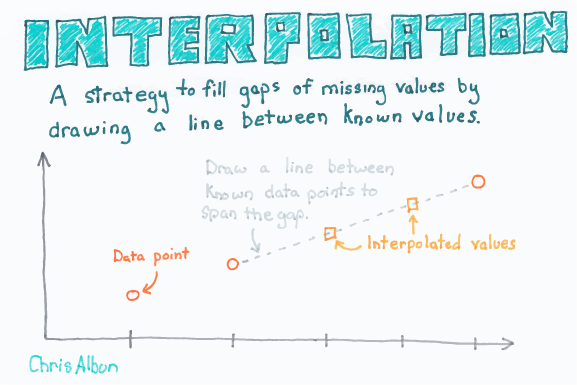 INTERPOLATION
A strategy to fill gaps of missing values by
drawing a line between known values.
Draw a line between
known data points to
span the gap.
Interpolated values
Data point
Chris Albon